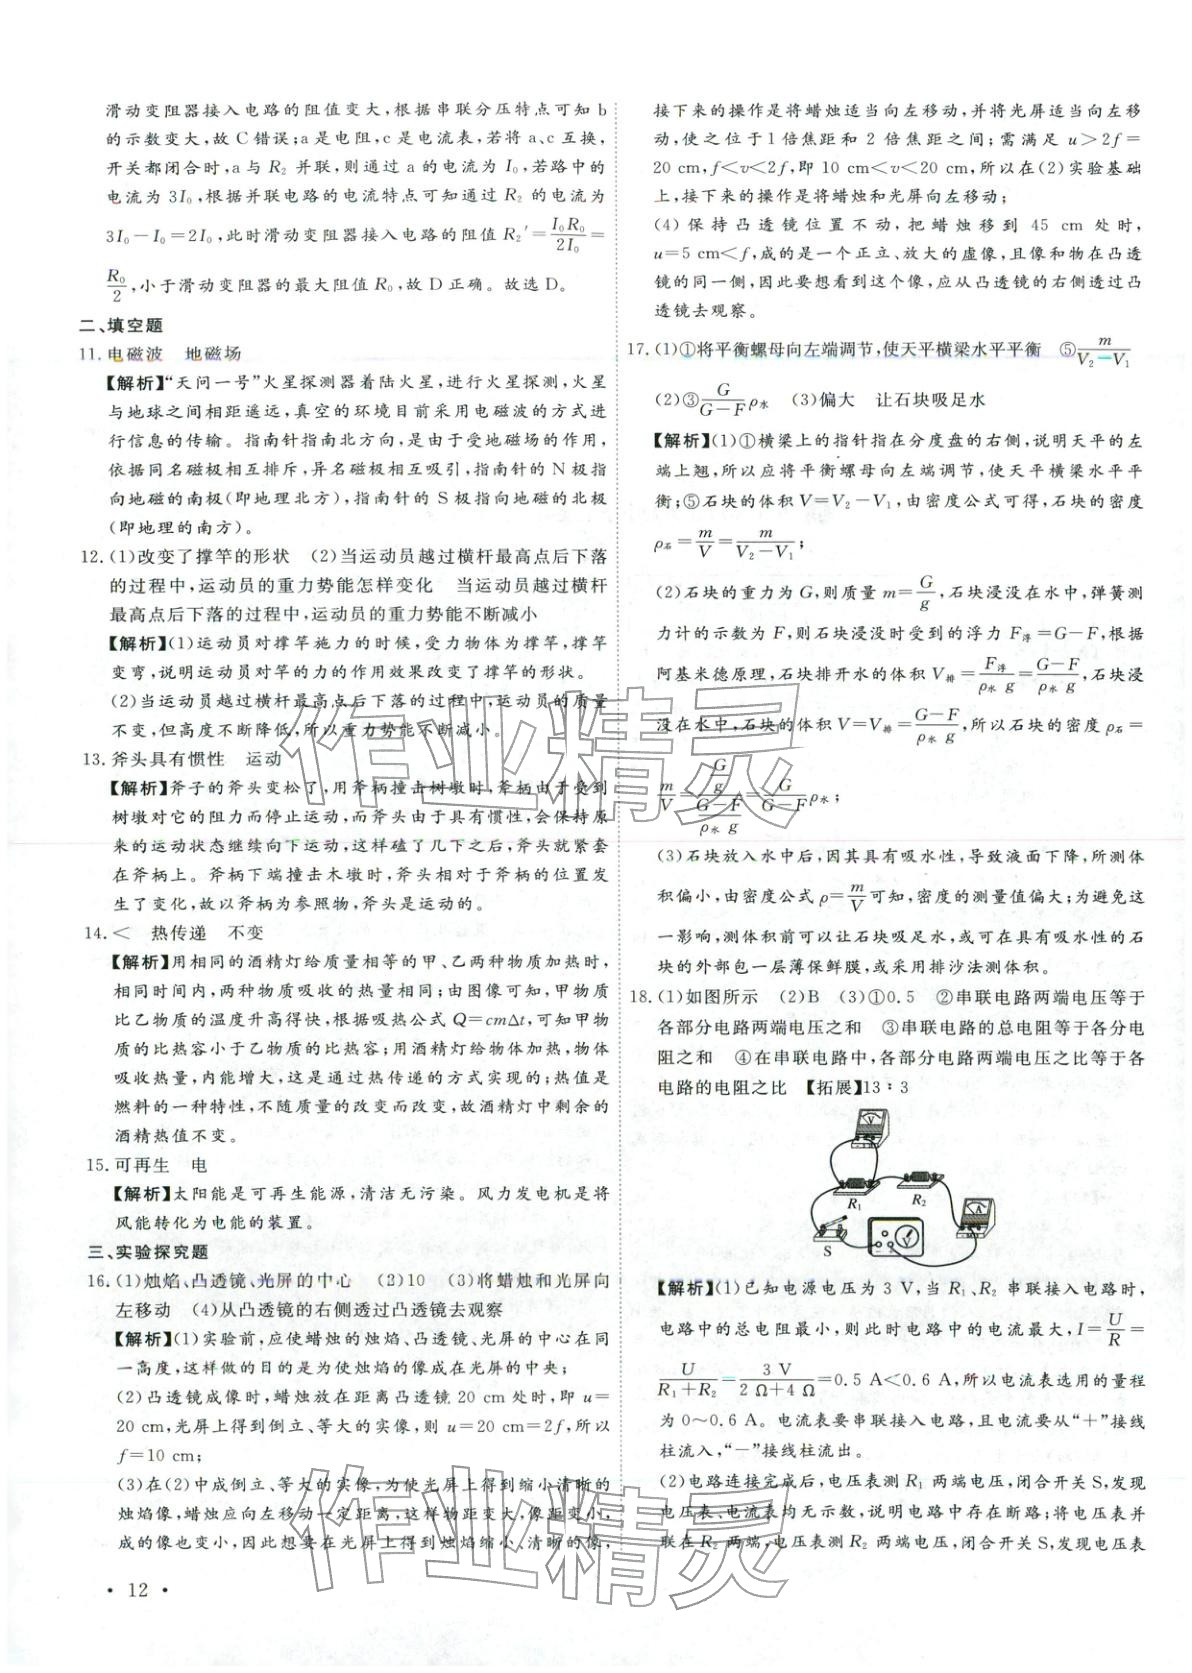 滑动变阻器接入电路的阻值变大，根据串联分压特点可知 b
的示数变大，故 C 错误；a 是电阻，c 是电流表，若将 a、c 互换，
开关都闭合时，a 与 R₂ 并联，则通过 a 的电流为 I₀，若路中的
电流为 3I₀，根据并联电路的电流特点可知通过 R₂ 的电流为
3I₀－I₀＝2I₀，此时滑动变阻器接入电路的阻值 R₂′＝I₀R₀/2I₀＝
R₀/2，小于滑动变阻器的最大阻值 R₀，故 D 正确。故选 D。
二、填空题
11. 电磁波　地磁场
【解析】“天问一号”火星探测器着陆火星，进行火星探测，火星
与地球之间相距遥远，真空的环境目前采用电磁波的方式进
行信息的传输。指南针指南北方向，是由于受地磁场的作用，
依据同名磁极相互排斥，异名磁极相互吸引，指南针的 N 极指
向地磁的南极(即地理北方)，指南针的 S 极指向地磁的北极
(即地理的南方)。
12. (1)改变了撑竿的形状　(2)当运动员越过横杆最高点后下落
的过程中，运动员的重力势能怎样变化　当运动员越过横杆
最高点后下落的过程中，运动员的重力势能不断减小
【解析】(1)运动员对撑竿施力的时候，受力物体为撑竿，撑竿
变弯，说明运动员对竿的力的作用效果改变了撑竿的形状。
(2)当运动员越过横杆最高点后下落的过程中，运动员的质量
不变，但高度不断降低，所以重力势能不断减小。
13. 斧头具有惯性　运动
【解析】斧子的斧头变松了，用斧柄撞击树墩时，斧柄由于受到
树墩对它的阻力而停止运动，而斧头由于具有惯性，会保持原
来的运动状态继续向下运动，这样磕了几下之后，斧头就紧套
在斧柄上。斧柄下端撞击木墩时，斧头相对于斧柄的位置发
生了变化，故以斧柄为参照物，斧头是运动的。
14. ＜　热传递　不变
【解析】用相同的酒精灯给质量相等的甲、乙两种物质加热时，
相同时间内，两种物质吸收的热量相同；由图像可知，甲物质
比乙物质的温度升高得快，根据吸热公式 Q＝cmΔt，可知甲物
质的比热容小于乙物质的比热容；用酒精灯给物体加热，物体
吸收热量，内能增大，这是通过热传递的方式实现的；热值是
燃料的一种特性，不随质量的改变而改变，故酒精灯中剩余的
酒精热值不变。
15. 可再生　电
【解析】太阳能是可再生能源，清洁无污染。风力发电机是将
风能转化为电能的装置。
三、实验探究题
16. (1)烛焰、凸透镜、光屏的中心　(2)10　(3)将蜡烛和光屏向
左移动　(4)从凸透镜的右侧透过凸透镜去观察
【解析】(1)实验前，应使蜡烛的烛焰、凸透镜、光屏的中心在同
一高度，这样做的目的是为使烛焰的像成在光屏的中央；
(2)凸透镜成像时，蜡烛放在距离凸透镜 20 cm 处时，即 u＝
20 cm，光屏上得到倒立、等大的实像，则 u＝20 cm＝2f，所以
f＝10 cm；
(3)在(2)中成倒立、等大的实像，为使光屏上得到缩小清晰的
烛焰像，蜡烛应向左移动一定距离，这样物距变大，像距变小，
成的像也变小，因此想要在光屏上得到烛焰缩小、清晰的像，
• 12 •
接下来的操作是将蜡烛适当向左移动，并将光屏适当向左移
动，使之位于 1 倍焦距和 2 倍焦距之间；需满足 u＞2f＝
20 cm，f＜v＜2f，即 10 cm＜v＜20 cm，所以在(2)实验基础
上，接下来的操作是将蜡烛和光屏向左移动；
(4) 保持凸透镜位置不动，把蜡烛移到 45 cm 处时，
u＝5 cm＜f，成的是一个正立、放大的虚像，且像和物在凸透
镜的同一侧，因此要想看到这个像，应从凸透镜的右侧透过凸
透镜去观察。
17. (1)①将平衡螺母向左端调节，使天平横梁水平平衡　⑤m/(V₂－V₁)
(2)③G/(G－F)ρ水　(3)偏大　让石块吸足水
【解析】(1)①横梁上的指针指在分度盘的右侧，说明天平的左
端上翘，所以应将平衡螺母向左端调节，使天平横梁水平平
衡；⑤石块的体积 V＝V₂－V₁，由密度公式可得，石块的密度
ρ石＝m/V＝m/(V₂－V₁)；
(2)石块的重力为 G，则质量 m＝G/g，石块浸没在水中，弹簧测
力计的示数为 F，则石块浸没时受到的浮力 F浮＝G－F，根据
阿基米德原理，石块排开水的体积 V排＝F浮/(ρ水 g)＝(G－F)/(ρ水 g)，石块浸
没在水中，石块的体积 V＝V排＝(G－F)/(ρ水 g)，所以石块的密度 ρ石＝
m/V＝(G/g)/((G－F)/(ρ水 g))＝G/(G－F)ρ水；
(3)石块放入水中后，因其具有吸水性，导致液面下降，所测体
积偏小，由密度公式 ρ＝m/V可知，密度的测量值偏大；为避免这
一影响，测体积前可以让石块吸足水，或可在具有吸水性的石
块的外部包一层薄保鲜膜，或采用排沙法测体积。
18. (1)如图所示　(2)B　(3)①0.5　②串联电路两端电压等于
各部分电路两端电压之和　③串联电路的总电阻等于各分电
阻之和　④在串联电路中，各部分电路两端电压之比等于各
电路的电阻之比　【拓展】13：3
V
R₁
R₂
A
S
V
【解析】(1)已知电源电压为 3 V，当 R₁、R₂ 串联接入电路时，
电路中的总电阻最小，则此时电路中的电流最大，I＝U/R＝
U/(R₁＋R₂)＝3 V/(2 Ω＋4 Ω)＝0.5 A＜0.6 A，所以电流表选用的量程
为 0～0.6 A。电流表要串联接入电路，且电流要从“＋”接线
柱流入，“－”接线柱流出。
(2)电路连接完成后，电压表测 R₁ 两端电压，闭合开关 S，发现
电压表、电流表均无示数，说明电路中存在断路；将电压表并
联在 R₂ 两端，电压表测 R₂ 两端电压，闭合开关 S，发现电压表
作业精灵
作业精灵